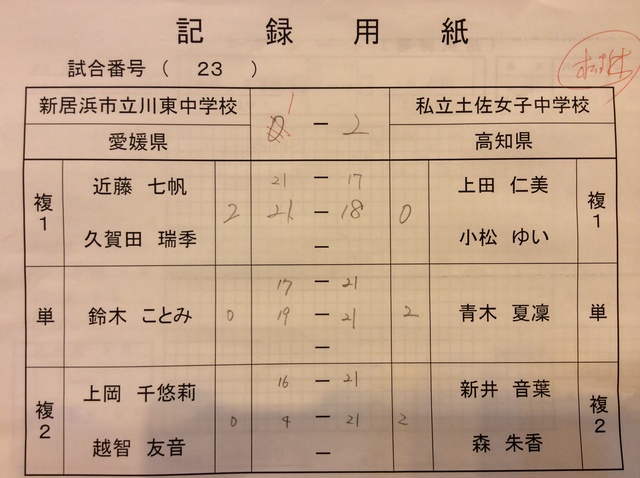 記録用紙
試合番号 ( 23 )
新居浜市立川東中学校 1 私立土佐女子中学校
0 ー 2
愛媛県 高知県
複1 近藤 七帆 21 ー 17 上田 仁美 複1
2 21 ー 18 0
久賀田 瑞季 ー 小松 ゆい
17 ー 21
単 鈴木 ことみ 0 19 ー 21 2 青木 夏凜 単
ー
複2 上岡 千悠莉 16 ー 21 新井 音葉 複2
0 4 ー 21 2
越智 友音 ー 森 朱香